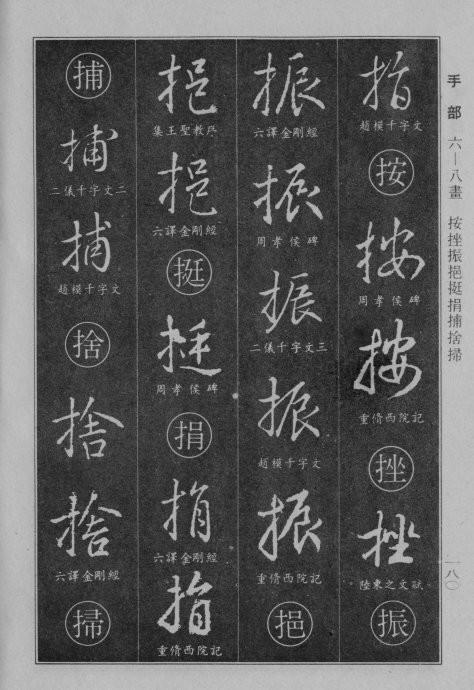 手部 六—八畫 按挫振挹挺捐捕捨掃
一八〇
指
趙模千字文
按
按
周孝侯碑
按
重脩西院記
挫
挫
陸柬之文賦
振
振
六譯金剛經
振
周孝侯碑
振
二儀千字文三
振
趙模千字文
振
重脩西院記
挹
挹
集王聖教序
挹
六譯金剛經
挺
挺
周孝侯碑
捐
捐
六譯金剛經
捐
重脩西院記
捕
捕
二儀千字文二
捕
趙模千字文
捨
捨
捨
六譯金剛經
掃